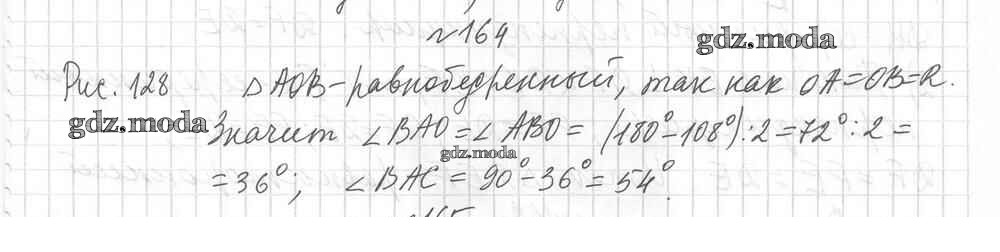 №164
gdz.moda
Рис. 128 △AOB-равнобедренный, так как OA=OB=R.
gdz.moda
Значит ∠BAO=∠ABO= (180°-108°):2=72°:2=
gdz.moda
=36°; ∠BAC = 90°-36°=54°.